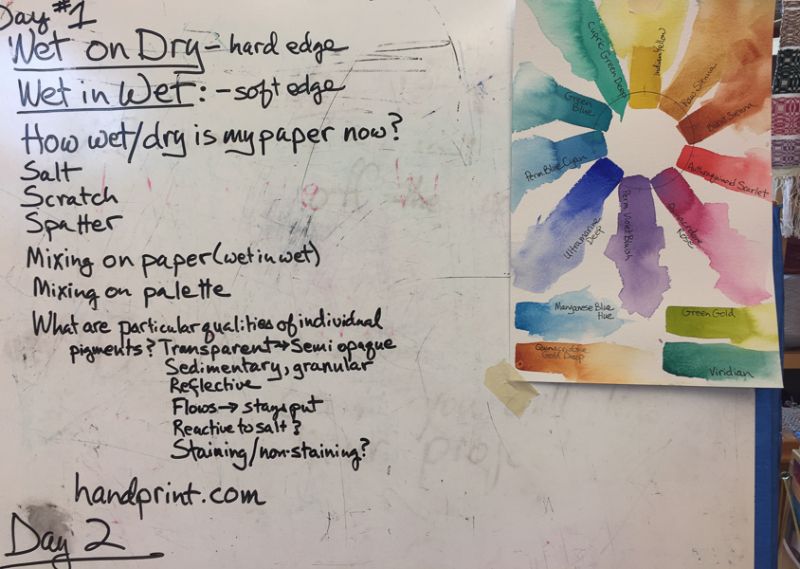 Day #1
Wet on Dry - hard edge
Wet in Wet: - soft edge
How wet/dry is my paper now?
Salt
Scratch
Spatter
Mixing on paper (wet in wet)
Mixing on palette
What are particular qualities of individual
pigments? Transparent → Semi opaque
Sedimentary, granular
Reflective
Flows → stays put
Reactive to salt?
Staining/non-staining?
handprint.com
Day 2
Cupric Green Deep
Indian Yellow
Raw Sienna
Burnt Sienna
Anthraquinoid Scarlet
Quinacridone
Rose
Perm Violet Bluish
Ultramarine
Deep
Perm Blue Cyan
Green
Blue
Manganese Blue
Hue
Green Gold
Quinacridone
Gold Deep
Viridian